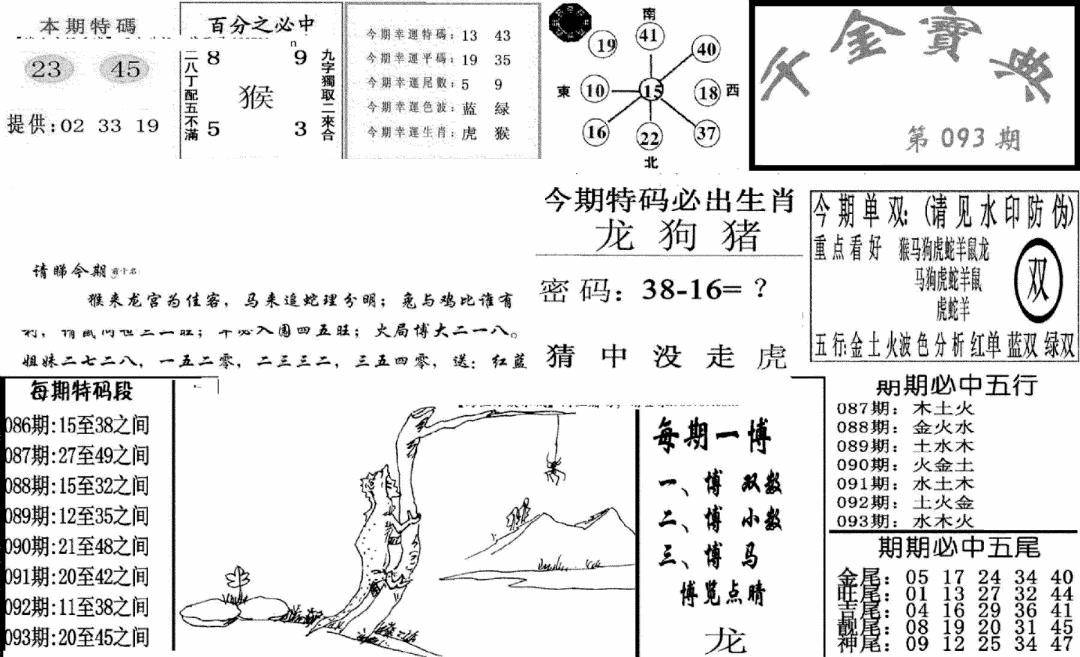 本期特碼
23 45
提供:02 33 19
百分之必中
二八丁配五不滿
8 9
猴
5 3
九字獨取二來合
今期幸運特碼: 13 43
今期幸運平碼: 19 35
今期幸運尾數: 5 9
今期幸運色波: 蓝 绿
今期幸運生肖: 虎 猴
南
41
19 40
東 10 15 18 西
16 22 37
北
金寶典
第 093 期
请睇今期
猴来龙宫为佳客，马来追蛇理分明；兔与鸡比谁有
火局博大二一八。
姐妹二七二八，一五二零，二三三二，三五四零，送：红蓝
今期特码必出生肖
龙 狗 猪
密码：38-16=？
猜 中 没 走 虎
今期单双:(请见水印防伪)
重点看好
猴马狗虎蛇羊鼠龙
马狗虎蛇羊鼠
虎蛇羊
双
五行:金土火波色分析红单 蓝双 绿双
每期特码段
086期:15至38之间
087期:27至49之间
088期:15至32之间
089期:12至35之间
090期:21至48之间
091期:20至42之间
092期:11至38之间
093期:20至45之间
每期一博
一、博 双数
二、博 小数
三、博 马
博览点睛
龙
期期必中五行
087期：木土火
088期：金火水
089期：土水木
090期：火金土
091期：水土木
092期：土火金
093期：水木火
期期必中五尾
金尾：05 17 24 34 40
旺尾：01 13 27 32 44
吉尾：04 16 29 36 41
靓尾：08 19 20 31 45
神尾：09 12 25 34 47